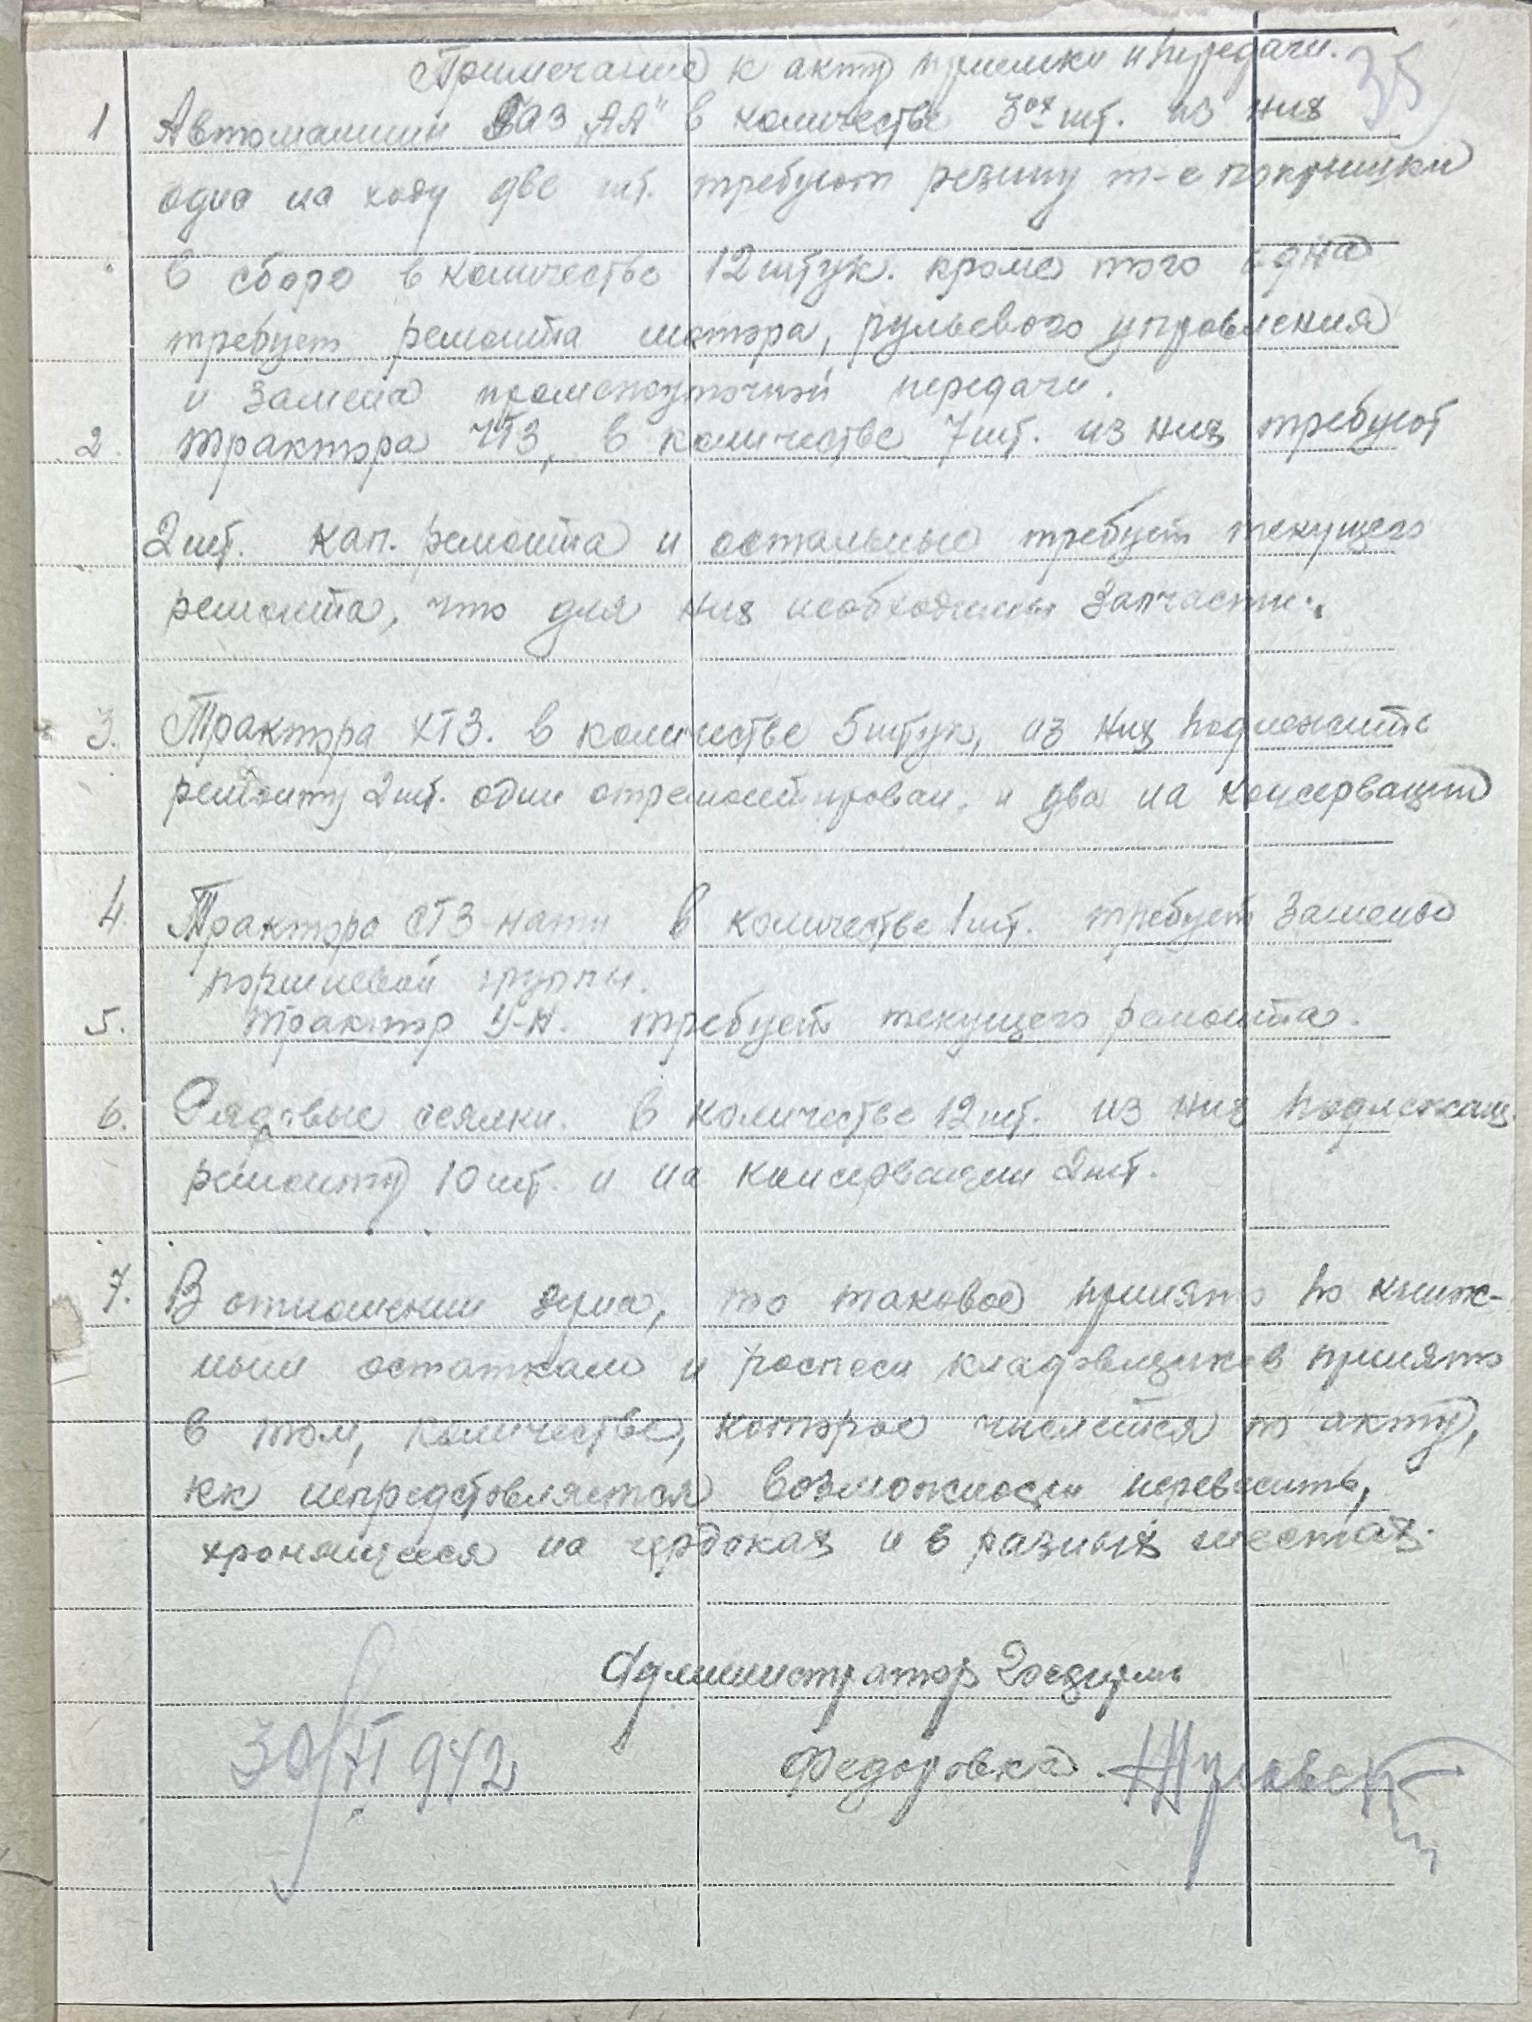 Примечание к акту приемки и передачи.
35
1 Автомашин ГАЗ "АА" в количестве 3ох шт. из них
одна на ходу две шт. требуют резину т-е покрышки
в сборе в количестве 12 штук. кроме того одна
требует ремонта мотора, рульевого управления
и замена промежуточной передачи.
2. Трактора ЧТЗ, в количестве 7 шт. из них требуют
2 шт. кап. ремонта и остальные требует текущего
ремонта, что для них необходимы запчасти.
3. Трактора ХТЗ. в количестве 5 штук, из них подлежить
ремонту 2 шт. один отремонтирован, и два на консервации
4. Трактора СТЗ-нати в количестве 1 шт. требует замены
поршневой группы.
5. Трактор У-Н. требует текущего ремонта.
6. Рядовые сеялки. в количестве 12 шт. из них подлежащ.
ремонту 10 шт. и на консервации 2 шт.
7. В отношении зерна, то таковое принято по книж-
ным остаткам и росписи кладовщиков принято
в том, количестве, которое числется по акту,
кк непредставляется возможности перевесить,
хронящееся на чердаках и в разных местах.
Администратор Госимения
Федоровка.
30/XI 942